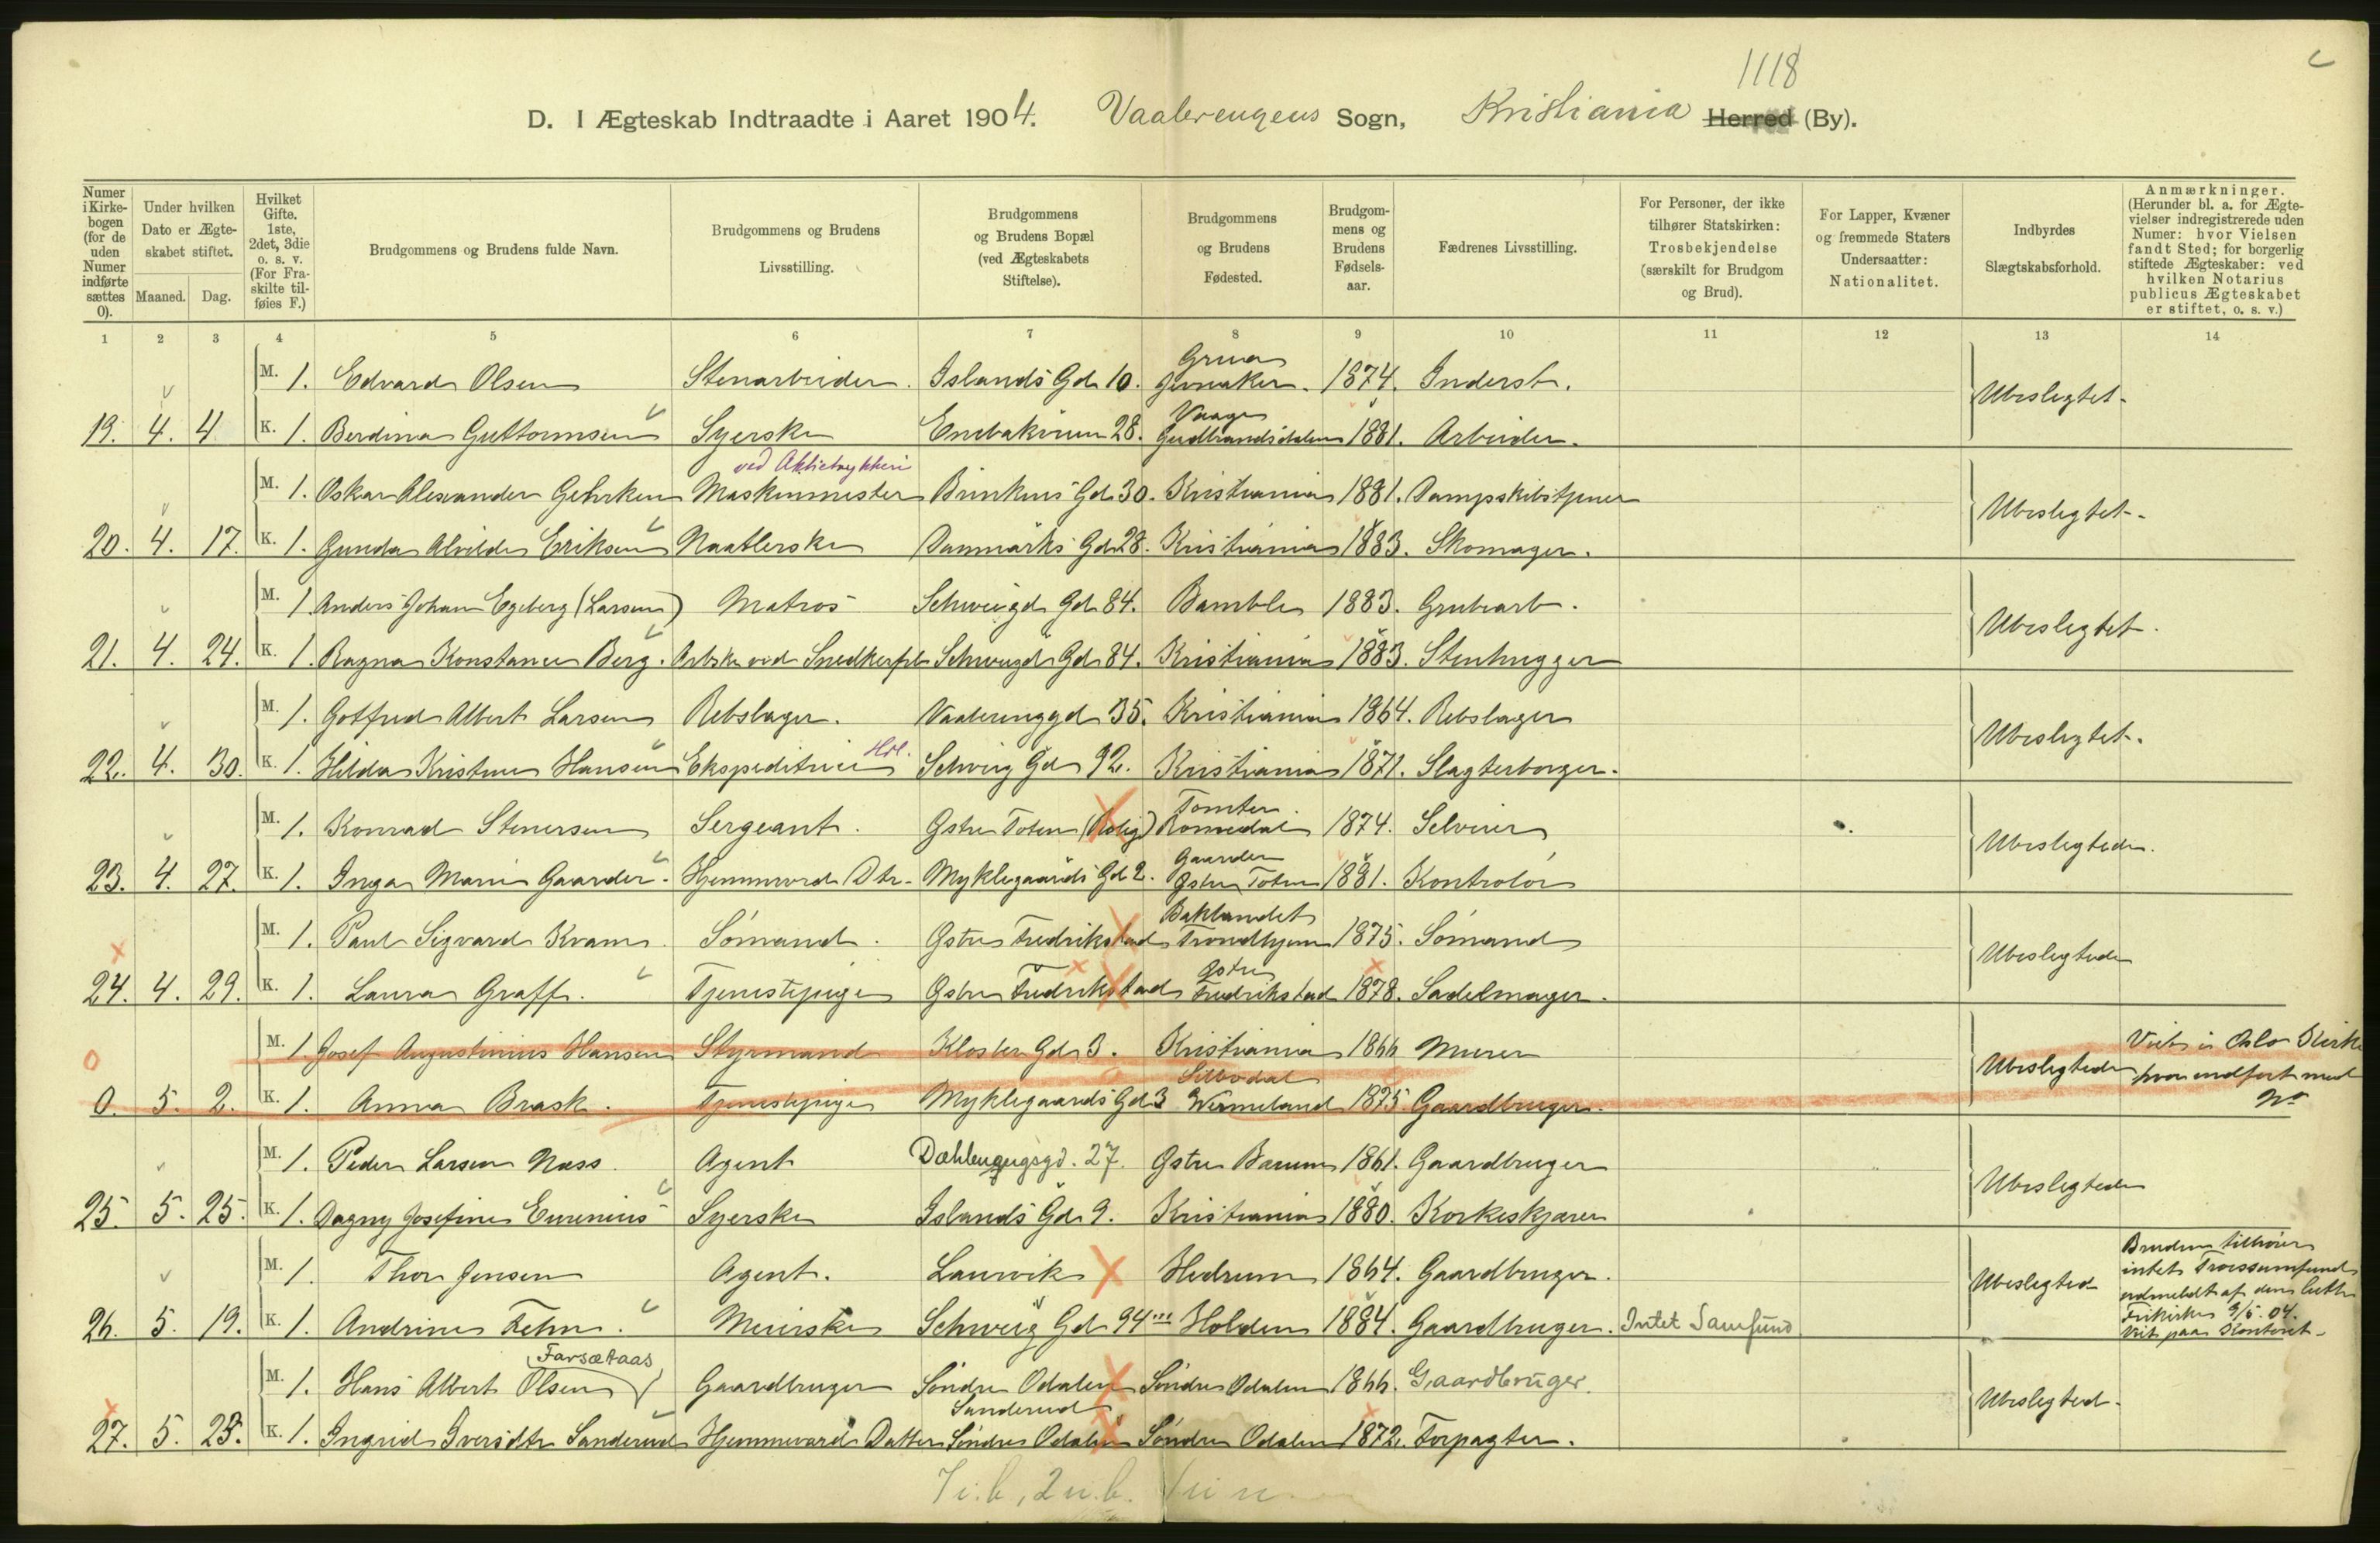 1118
D. I Ægteskab Indtraadte i Aaret 1904. Vaalerengens Sogn, Kristiania Herred (By).
Numer i Kirkebogen (for de uden Numer indførte sættes 0).
Under hvilken Dato er Ægteskabet stiftet.
Maaned. Dag.
Hvilket Gifte. 1ste, 2det, 3die o. s. v. (For Fraskilte tilføies F.)
Brudgommens og Brudens fulde Navn.
Brudgommens og Brudens Livsstilling.
Brudgommens og Brudens Bopæl (ved Ægteskabets Stiftelse).
Brudgommens og Brudens Fødested.
Brudgommens og Brudens Fødselsaar.
Fædrenes Livsstilling.
For Personer, der ikke tilhører Statskirken: Trosbekjendelse (særskilt for Brudgom og Brud).
For Lapper, Kvæner og fremmede Staters Undersaatter: Nationalitet.
Indbyrdes Slægtskabsforhold.
Anmærkninger. (Herunder bl. a. for Ægtevielser indregistrerede uden Numer: hvor Vielsen fandt Sted; for borgerlig stiftede Ægteskaber: ved hvilken Notarius publicus Ægteskabet er stiftet, o. s. v.)
1 2 3 4 5 6 7 8 9 10 11 12 13 14
M. 1. Edvard Olsen Stenarbeider. Islands Gd. 10. Grua Jevnaker. 1874. Inderst. Ubeslegtet.
19. 4. 4 K. 1. Berdina Guttormsen Syerske Enebakveien 28. Vaage Gudbrandsdalen 1881. Arbeider.
ved Aktietrykkeri
M. 1. Oskar Alexander Gehrken Maskinmester Brinkens Gd. 30. Kristiania 1881. Dampskibstjener Ubeslegtet.
20. 4. 17. K. 1. Gunda Alvilde Eriksen Naatlerske Danmarks Gd. 28. Kristiania 1883. Skomager.
M. 1. Anders Johan Egeberg (Larsen) Matros Schweigd Gd. 84. Bamble 1883. Grubearb. Ubeslegtet.
21. 4. 24. K. 1. Ragna Konstance Berg. Arbske ved Snedkerfabr Schweigd Gd. 84. Kristiania 1883. Stenhugger
M. 1. Gotfred Albert Larsen Rebslager. Vaalerenggd 35. Kristiania 1864. Rebslager Ubeslegtet.
22. 4. 30. K. 1. Hilda Kristine Hansen Ekspeditrice Hdl. Schweig Gd 92. Kristiania 1871. Slagterborger.
M. 1. Konrad Stenersen Sergeant. Østre Toten (Bolig) Tomter Romedal 1874. Selveier Ubeslegtede.
23. 4. 27. K. 1. Inga Marie Gaarder. Hjemmeværd Dtr. Myklegaards Gd 2. Gaarder Østre Toten 1881. Kontrolør
M. 1. Paul Sigvard Kvam Sømand. Østre Fredrikstad Baklandet Trondhjem 1875. Sømand Ubeslegtede
24. 4. 29. K. 1. Laura Graff. Tjenestepige Østre Fredrikstad Østre Fredrikstad 1878. Sadelmager.
M. 1. Josef Augustinius Hansen Styrmand Kloster Gd 3. Kristiania 1866 Murer Ubeslegtede Viet i Oslo Kirke
0. 5. 2. K. 1. Anna Brask. Tjenestepige Myklegaards Gd 3 Silbodal Wermeland 1875 Gaardbruger. hvor indført med No
M. 1. Peder Larsen Næss. Agent Dahlengengsgd. 27. Østre Bærum 1861. Gaardbruger Ubeslegtede
25. 5. 25. K. 1. Dagny Josefine Eurenius Syerske Islands Gd 9. Kristiania 1880. Korkeskjærer
M. 1. Thor Jensen Agent. Laurvik Hedrum 1864. Gaardbruger. Ubeslegted Bruden tilhører intet Troessamfund
26. 5. 19. K. 1. Andrine Fehn. Meierske Schweig Gd 94 III Holden 1884. Gaardbruger. Intet Samfund udmeldt af den luth Frikirke 9/5. 04. Viet paa Kontoret.
M. 1. Hans Albert Olsen (Farsætaas) Gaardbruger Søndre Odalen Søndre Odalen 1866. Gaardbruger. Ubeslegted.
27. 5. 23. K. 1. Ingrid Iversdtr Sanderud Hjemmevær. Datter Sanderud Søndre Odalen Søndre Odalen 1872. Forpagter.
7 i.b, 2 u.b.